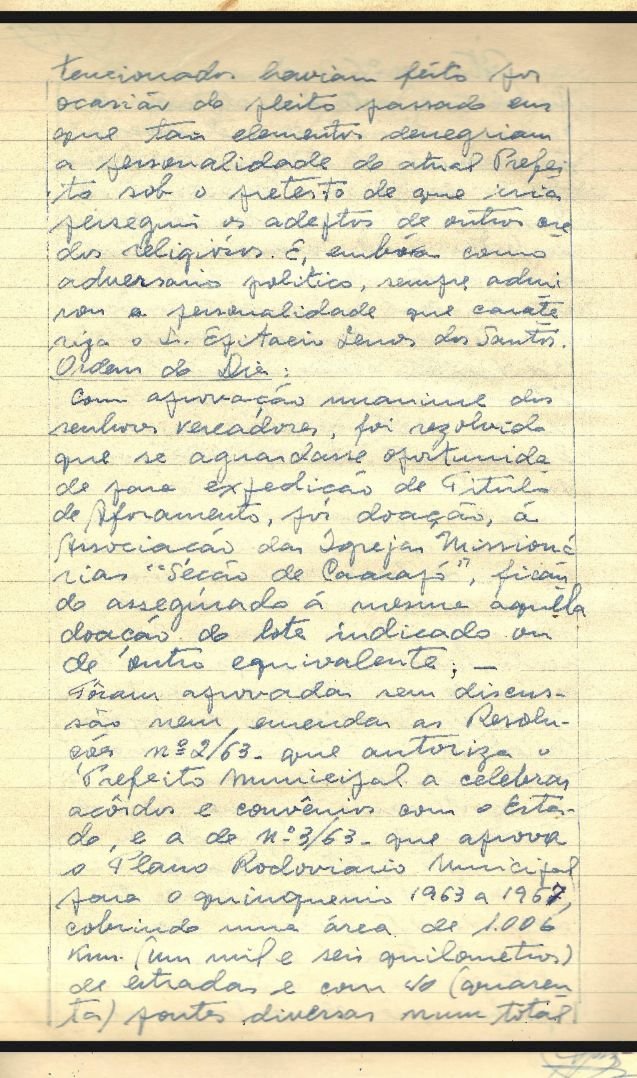 tencionados haviam feito por
ocasião do pleito passado em
que tais elementos denegriam
a personalidade do atual Prefei
to sob o pretesto de que iria
perseguir os adeptos de outros cre
dos religiósos. E, embóra como
adversario politico, sempre admi
rou a personalidade que caraté
riza o Sr. Epitacio Lemos dos Santos.
Ordem do Dia:
Com aprovação unanime dos
senhores vereadores, foi rezolvido
que se aguardasse oportunida
de para expedição de Titulo
de Aforamento, por doação, á
Associação das Igrejas Missioná
rias "Séccão de Caacapó", fican
do assegurado á mesma aquélla
doação do lote indicado ou
de outro equivalente; —
Fôram aprovadas sem discus-
são nem emendas as Resolu-
ções nº 2/63 - que autoriza o
Prefeito Municipal a celebrar
acôrdos e convênios com o Esta-
do, e a de Nº 3/63 - que aprova
o Plano Rodoviario Municipal
para o quinquenio 1963 a 1967,
cobrindo uma área de 1.006
Km. (um mil e seis quilometros)
de estradas e com 40 (quaren
ta) pontes diversas num total